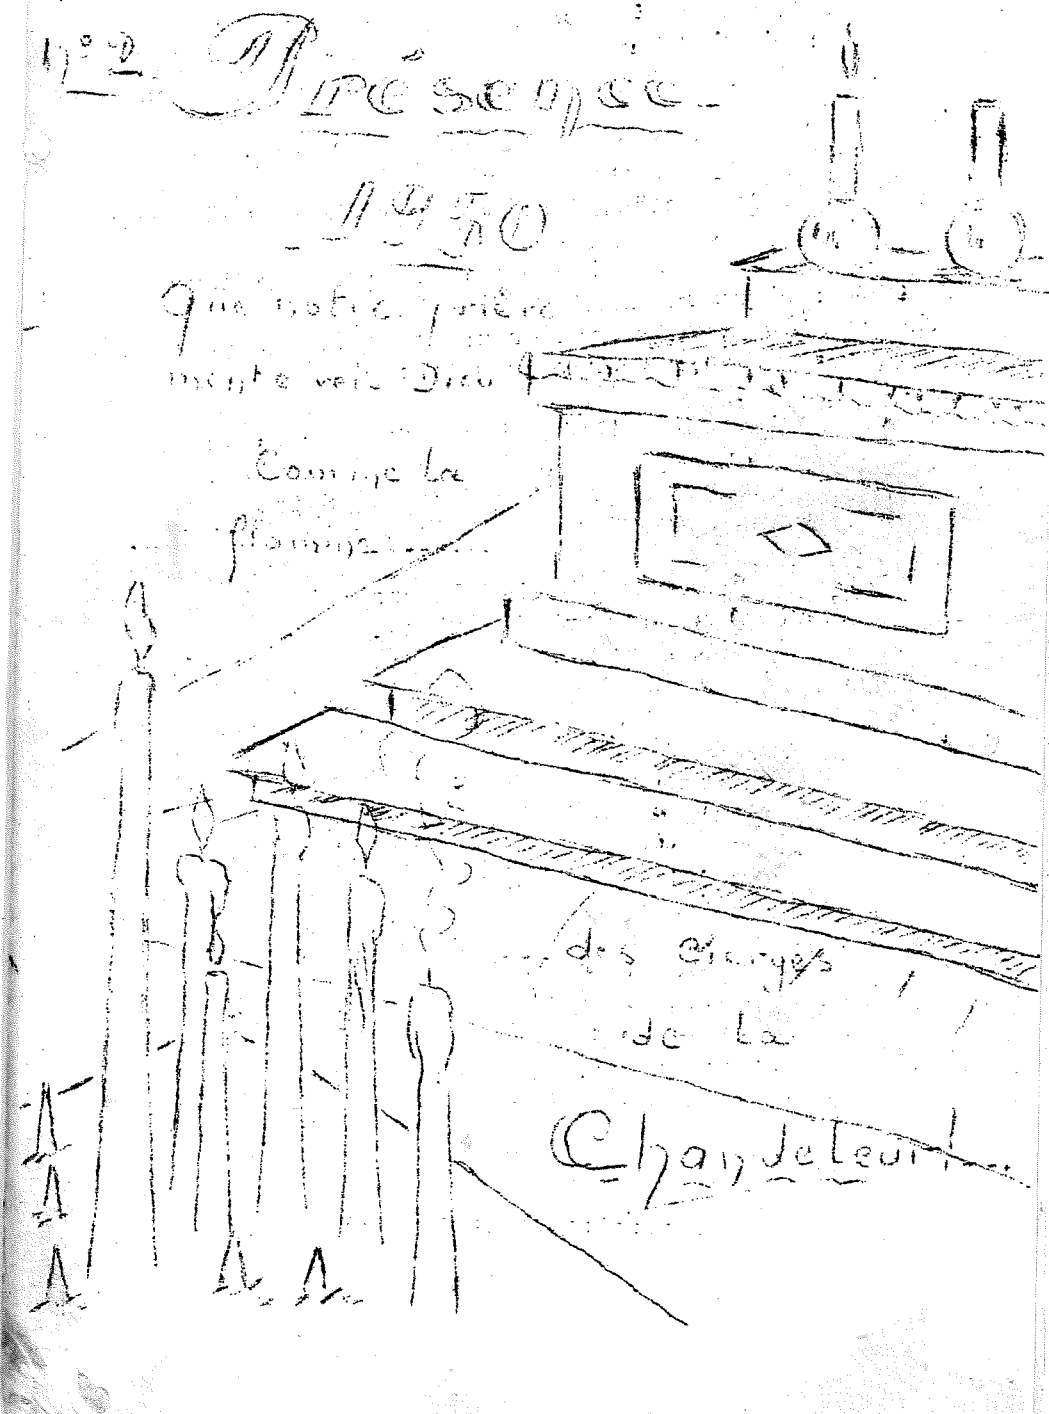 N° 2 Présence
Que notre prière
monte vers Dieu
Comme la
flamme......
des cierges
de la
Chandeleur!...